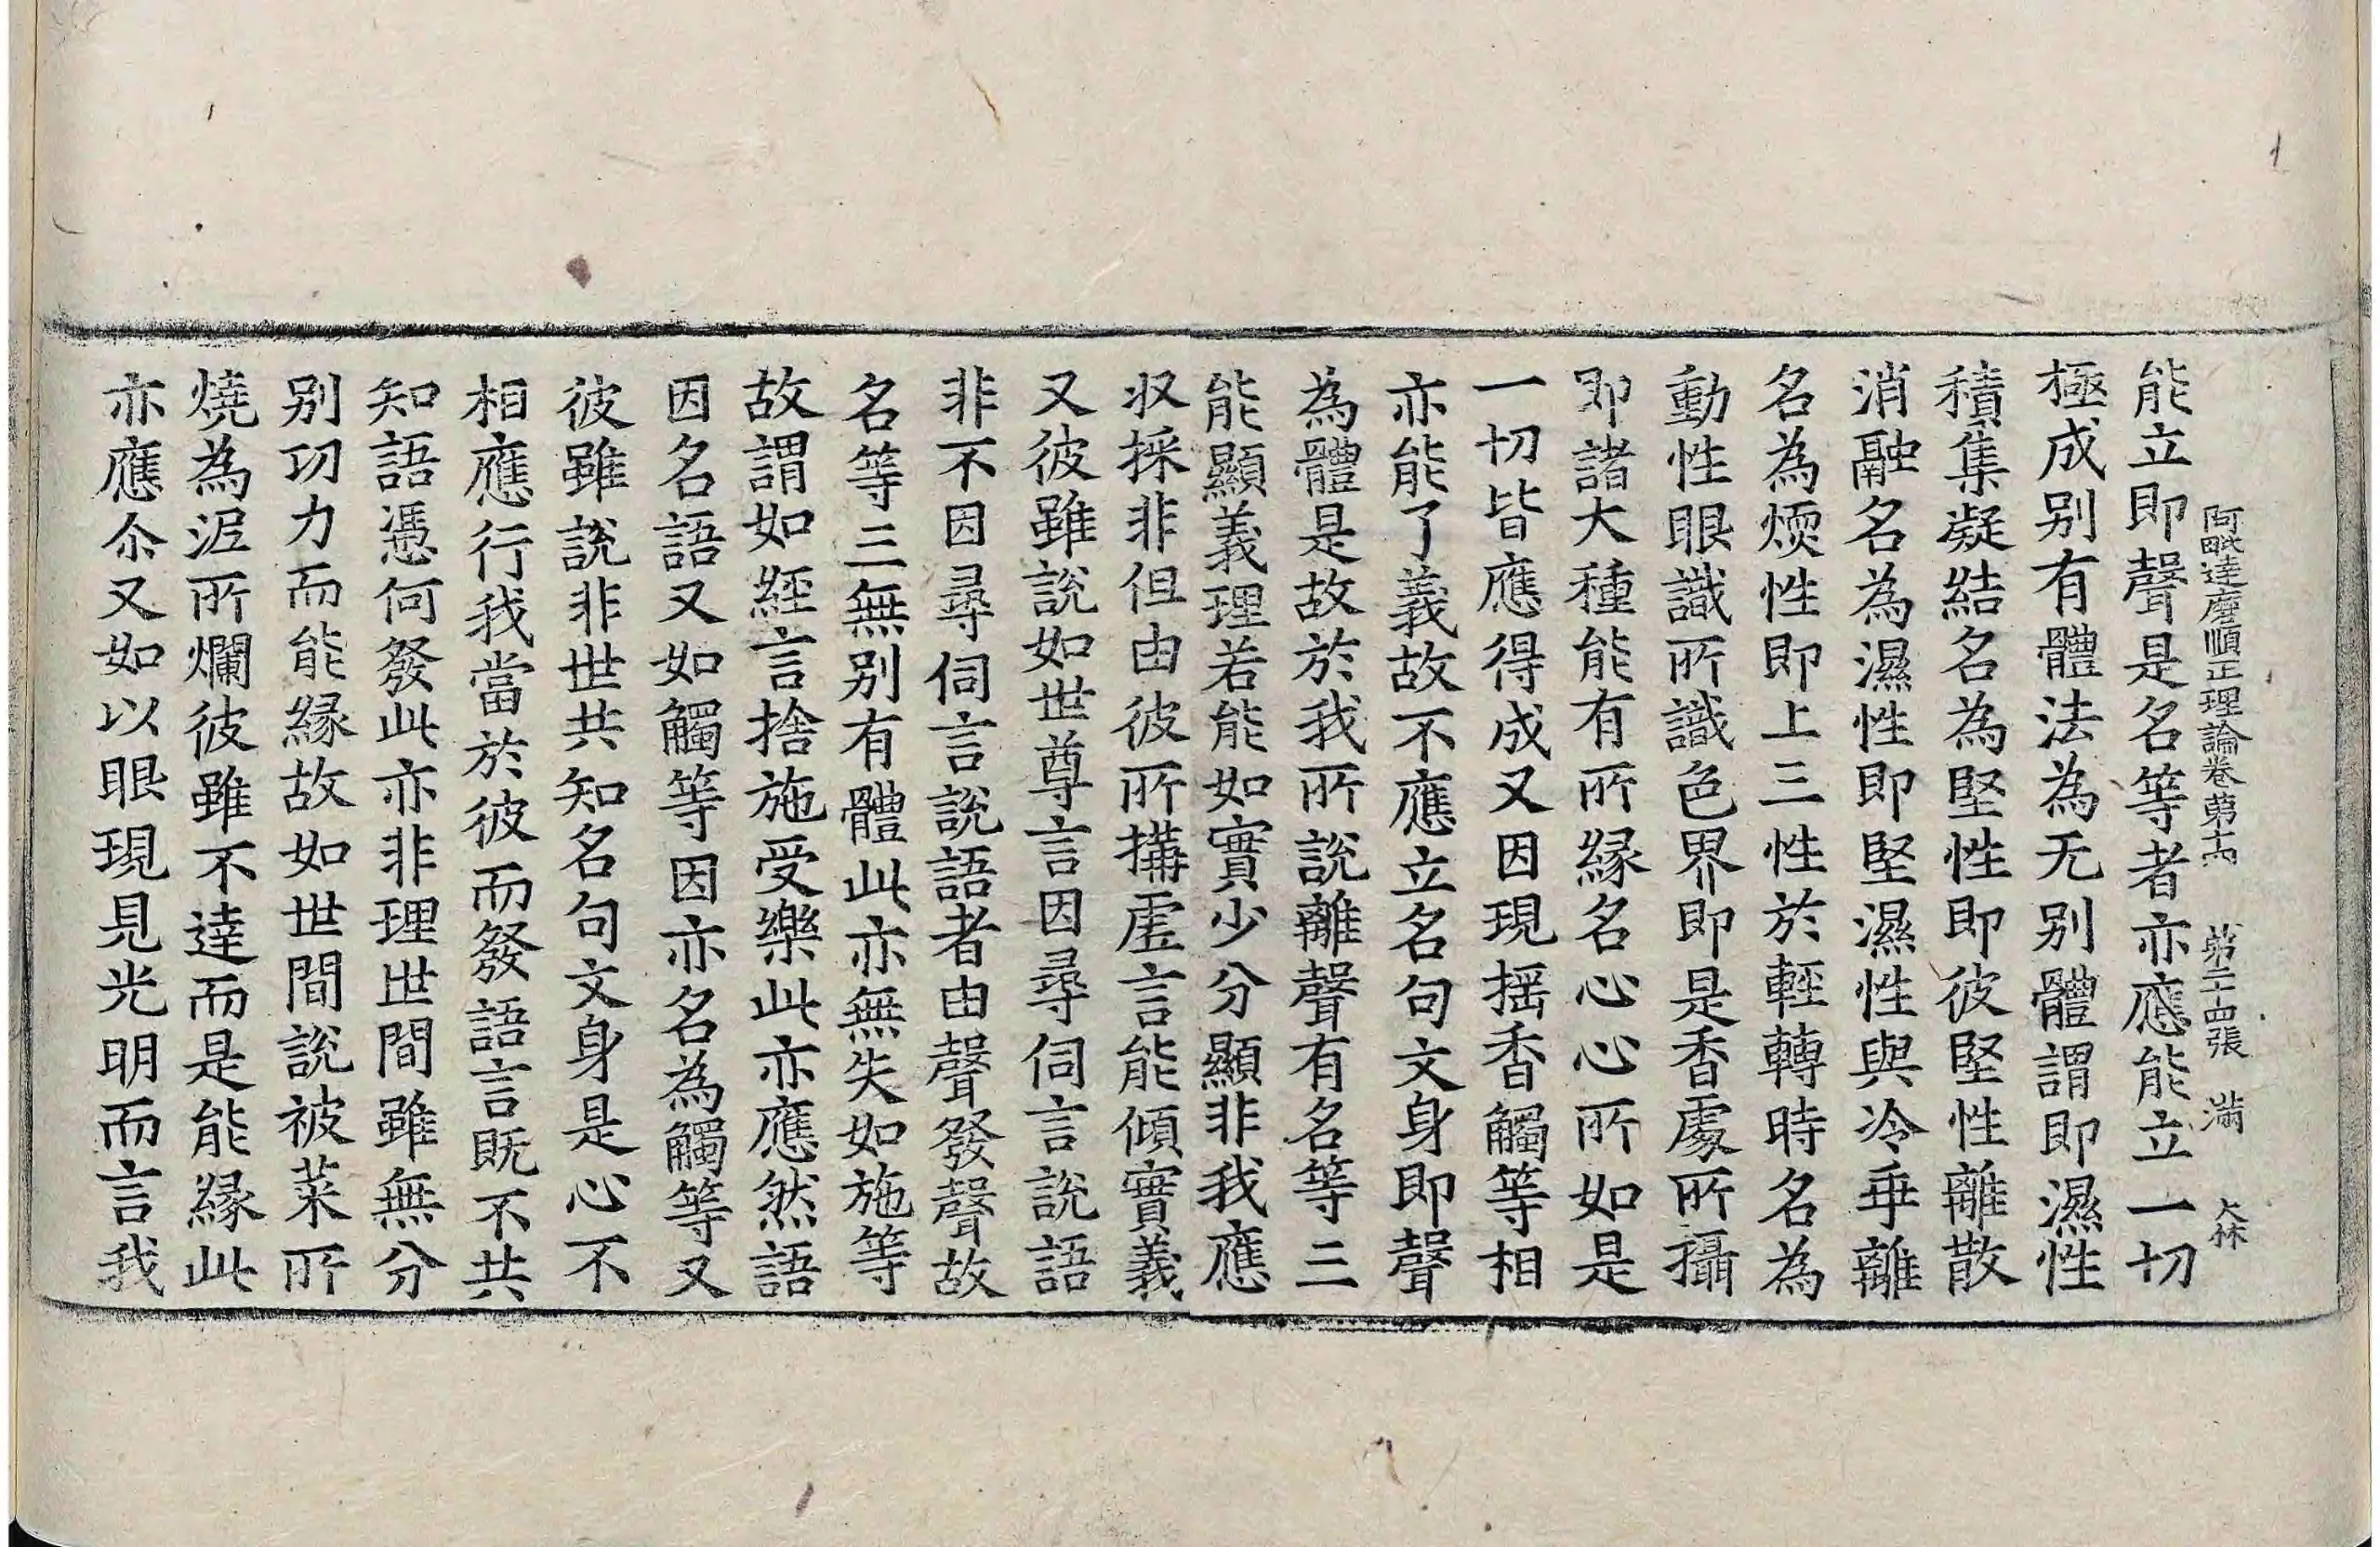 阿毗達磨順正理論卷第十四 第二十四張 滿 大林
能立即聲是名等者亦應能立一切
極成别有體法為无别體謂即濕性
積集凝結名為堅性即彼堅性離散
消融名為濕性即堅濕性與冷乖離
名為煗性即上三性於輕轉時名為
動性眼識所識色界即是香處所攝
即諸大種能有所緣名心心所如是
一切皆應得成又因現摇香觸等相
亦能了義故不應立名句文身即聲
為體是故於我所說離聲有名等三
能顯義理若能如實少分顯非我應
収採非但由彼所搆虛言能傾實義
又彼雖說如世尊言因尋伺言說語
非不因尋伺言說語者由聲發聲故
名等三無别有體此亦無失如施等
故謂如經言捨施受樂此亦應然語
因名語又如觸等因亦名為觸等又
彼雖說非世共知名句文身是心不
相應行我當於彼而發語言既不共
知語憑何發此亦非理世間雖無分
别功力而能緣故如世間說被菜所
燒為泥所爛彼雖不達而是能緣此
亦應尒又如以眼現見光明而言我